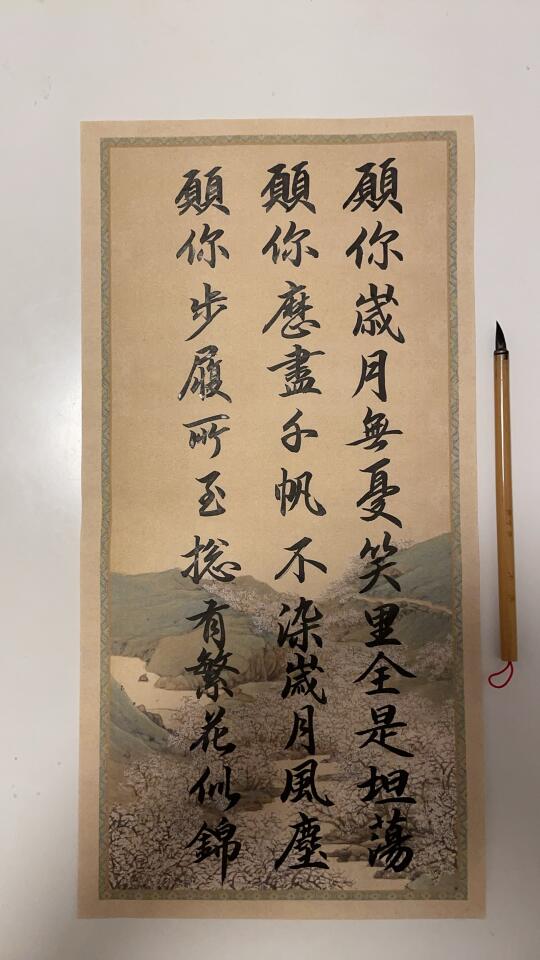 願你歲月無憂笑里全是坦蕩
願你歷盡千帆不染歲月風塵
願你步履所至總有繁花似錦